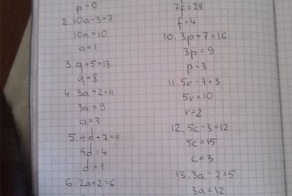 p=0
2. 10a-3=7
10a=10
a=1
3. q+5=13
q=8
4. 3a+2=11
3a=9
a=3
5. 4d+7=11
4d=4
d=1
6. 2a+2=6
7f=28
f=4
10. 3p+7=16
3p=9
p=3
11. 5r-7=3
5r=10
r=2
12. 5c-3=12
5c=15
c=3
13. 3a-2=5
3a=12